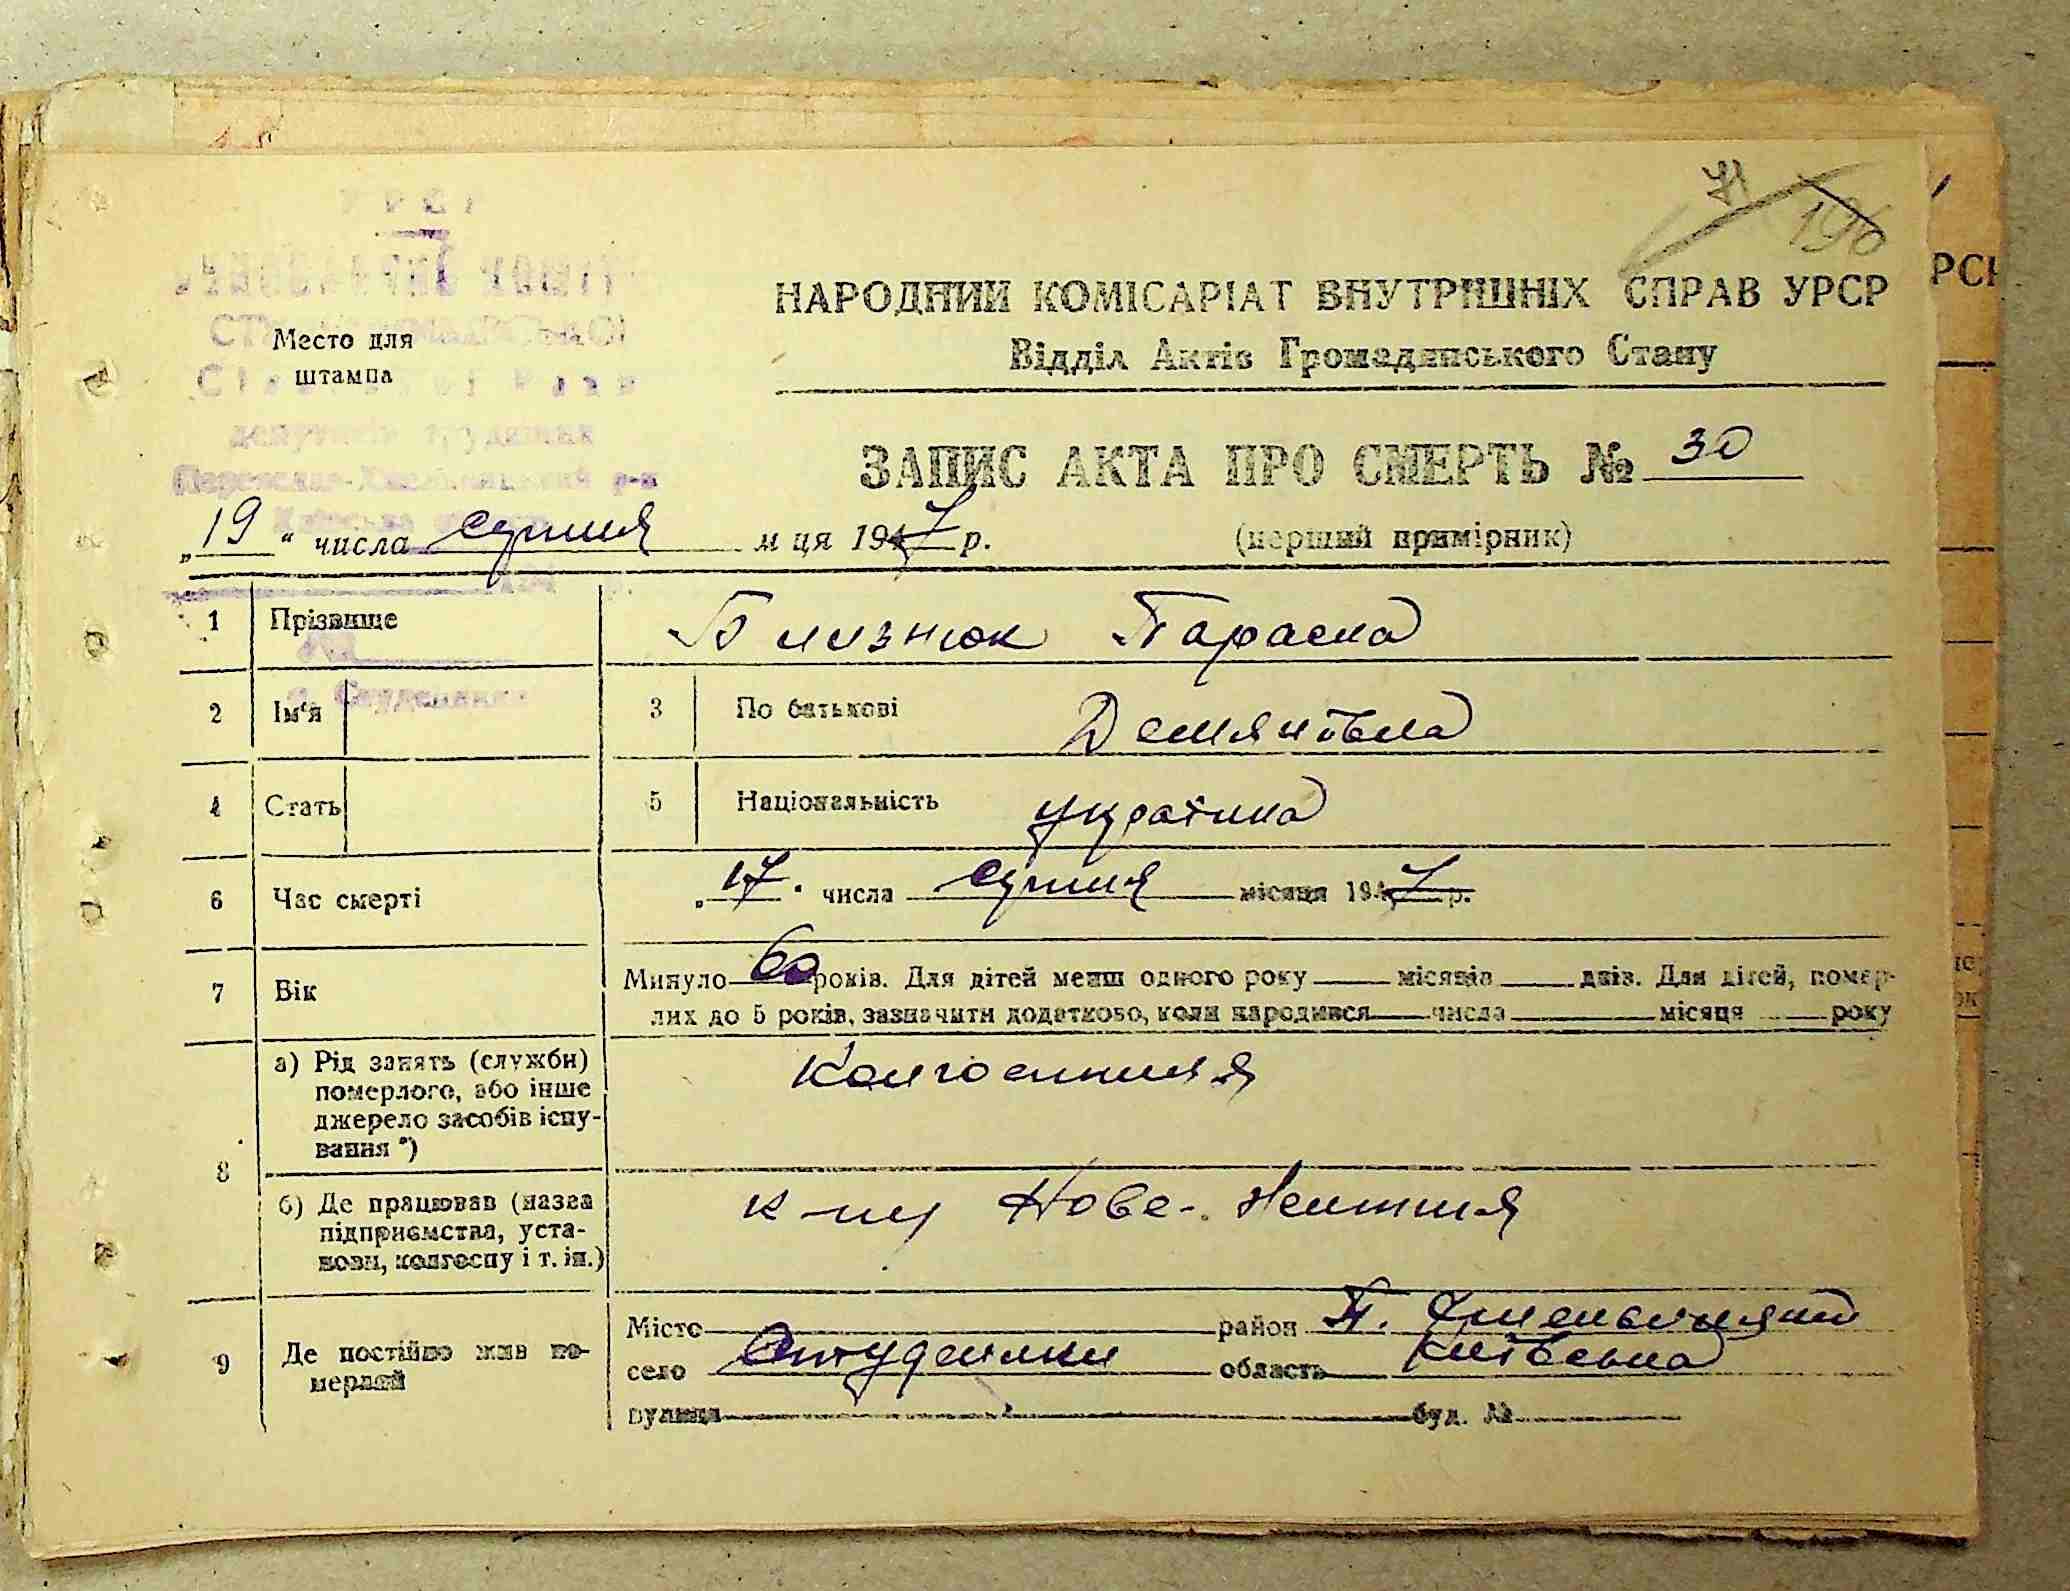 71
196
УРСР
Место для
штампа
НАРОДНИЙ КОМІСАРІАТ ВНУТРІШНІХ СПРАВ УРСР
Відділ Актів Громадянського Стану
депутатів трудящих
Переяслав-Хмельницький р-н
ЗАПИС АКТА ПРО СМЕРТЬ № 30
„19“ числа серпня м ця 1947 р.
(перший примірник)
1 Прізвище Близнюк Параска
с. Студеники
2 Ім'я 3 По батькові Демянівна
4 Стать 5 Національність українка
6 Час смерті „17“ числа серпня місяця 1947 р.
7 Вік Минуло 60 років. Для дітей менш одного року місяців днів. Для дітей, помер-
лих до 5 років, зазначити додатково, коли народився числа місяця року
8 а) Рід занять (служби)
померлого, або інше
джерело засобів існу-
вання *)
Колгоспниця
б) Де працював (назва
підприємства, уста-
нови, колгоспу і т. ін.)
к-пу Нове-Життя
9 Де постійно жив по-
мерлий
Місто район П. Хмельницький
село Студеники область Київська
вулиця буд. №